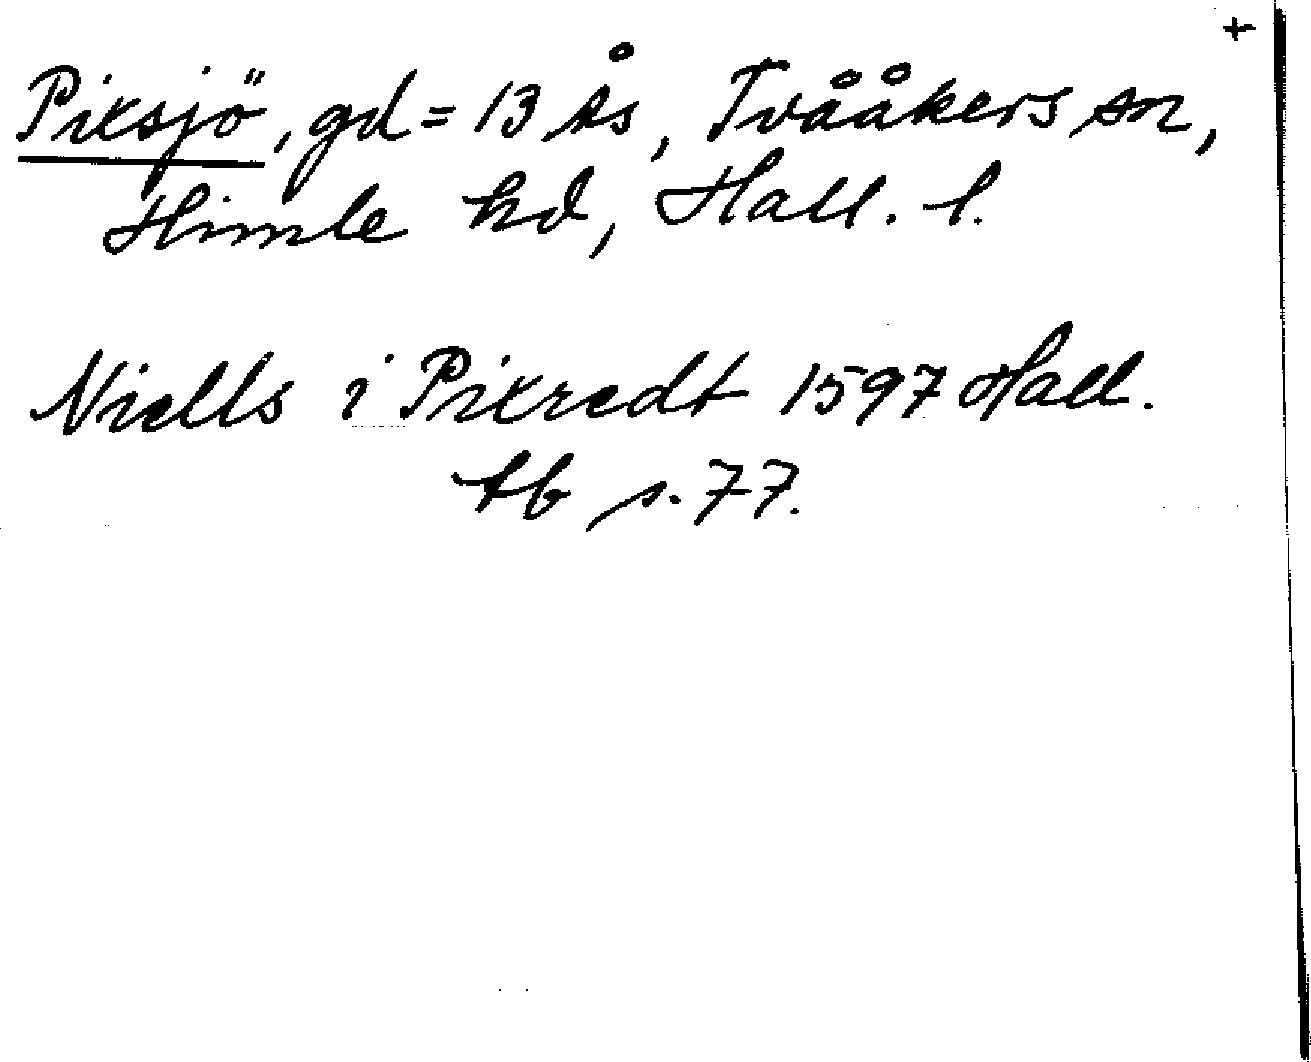 +
Piksjö, gd = 13 Ås, Tvååkers sn,
Himle hd, Hall. l.
Niells i Pikredt 1597 Hall.
tb s. 77.